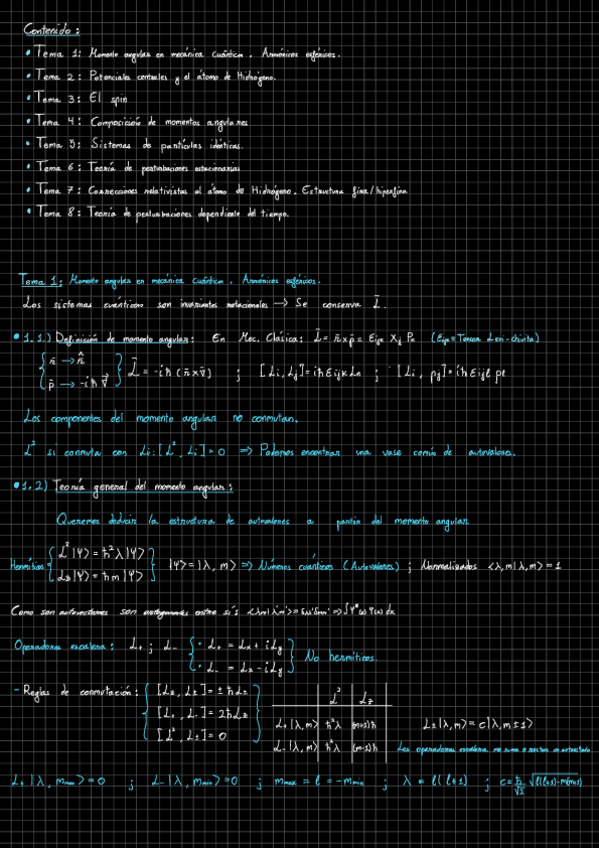 Contenido:
• Tema 1: Momento angular en mecánica cuántica. Armónicos esféricos.
• Tema 2: Potenciales centrales y el átomo de Hidrógeno.
• Tema 3: El spin
• Tema 4: Composición de momentos angulares
• Tema 5: Sistemas de partículas idénticas.
• Tema 6: Teoría de perturbaciones estacionarias
• Tema 7: Correcciones relativistas al átomo de Hidrógeno. Estructura fina/hiperfina
• Tema 8: Teoría de perturbaciones dependiente del tiempo.
Tema 1: Momento angular en mecánica cuántica. Armónicos esféricos.
Los sistemas cuánticos son invariantes rotacionales → Se conserva L⃗.
• 1.1) Definición de momento angular: En Mec. Clásica: L⃗ = r⃗ x p⃗ = εijk Xj Pk (εijk = Tensor Levi-chivita)
{ r⃗ → r̂ ; p⃗ → -iħ∇⃗ } L⃗ = -iħ (r⃗ x ∇⃗) ; [Li, Lj] = iħ εijk Lk ; [Li, pj] = iħ εijl pl
Los componentes del momento angular no conmutan.
L² si conmuta con Li: [L², Li] = 0 ⇒ Podemos encontrar una vase común de autovalores.
• 1.2) Teoría general del momento angular:
Queremos deducir la estructura de autovalores a partir del momento angular
Hermíticos { L²|Ψ> = ħ²λ|Ψ> ; Lz|Ψ> = ħm|Ψ> } |Ψ> = |λ, m> ⇒ Números cuánticos (Autovalores) ; Normalizados <λ, m|λ, m> = 1
Como son autovectores son ortogonales entre sí:
Operadores escalera: L+ ; L- { • L+ = Lx + iLy
• L- = Lx - iLy } No hermíticos.
- Reglas de conmutación: { [Lz, L±] = ±ħL±
[L+, L-] = 2ħLz
[L², L±] = 0 }
L² Lz
L+|λ, m> ħ²λ (m+1)ħ
L-|λ, m> ħ²λ (m-1)ħ
L±|λ, m> = c|λ, m±1>
Los operadores escalera
L+|λ, mmax> = 0 ; L-|λ, mmin> = 0 ; mmax = l = -mmin ; λ = l(l+1) ;